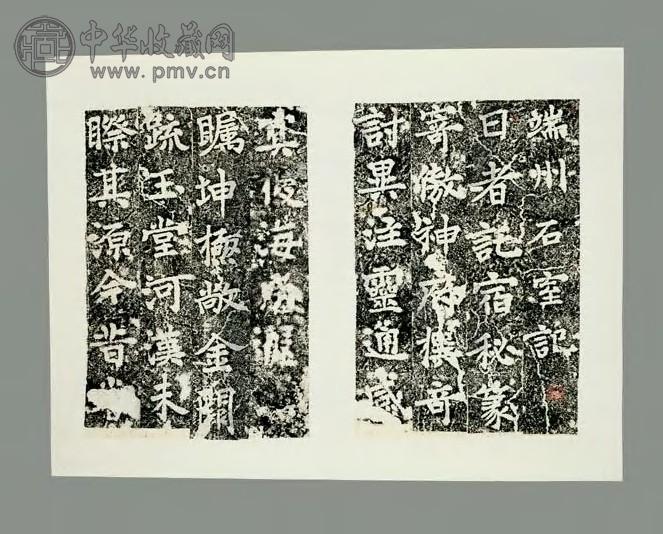 中华收藏网
www.pmv.cn
端州石室記
日者託宿秘篆
寄傲神府奇
討異注靈通感
海
矚坤極敞金闕
疏玉堂河漢未
際其源今昔